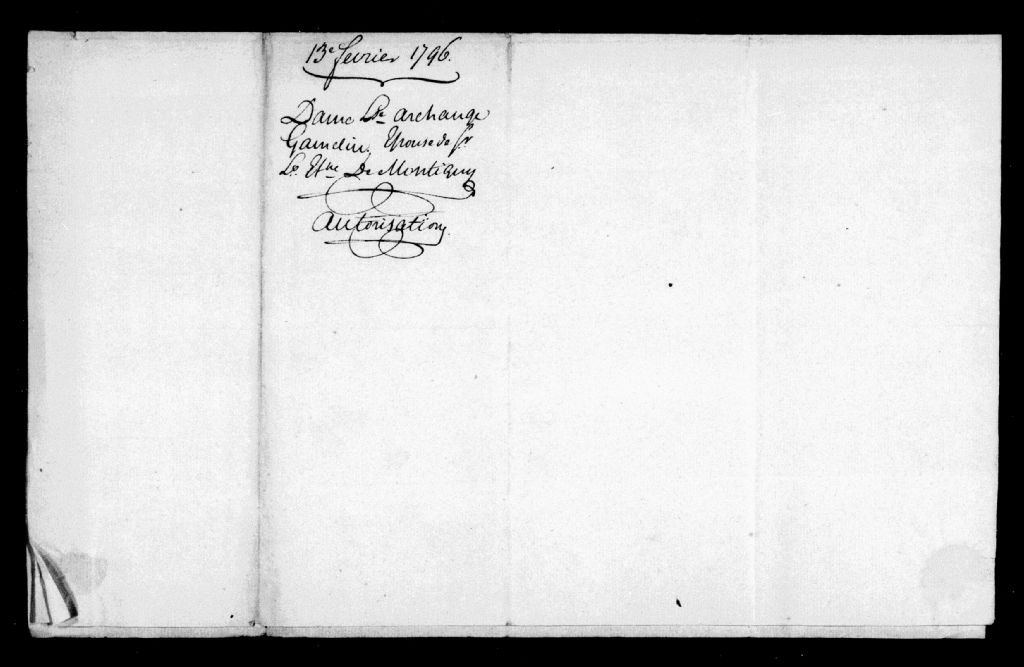 13e fevrier 1796.
Dame Lse archange
Gamelin, Epouse de Sr
Ls Etne De Montigny
autorisation